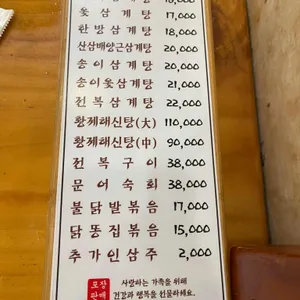 옻 삼 계 탕 17,000
한 방 삼 계 탕 18,000
산삼배양근삼계탕 20,000
송 이 삼 계 탕 20,000
송이옻삼계탕 21,000
전 복 삼 계 탕 22,000
황제해신탕(大) 110,000
황제해신탕(中) 90,000
전 복 구 이 38,000
문 어 숙 회 38,000
불 닭 발 볶 음 17,000
닭 똥 집 볶 음 15,000
추 가 인 삼 주 2,000
포장
판매
사랑하는 가족을 위해
건강과 행복을 선물하세요.